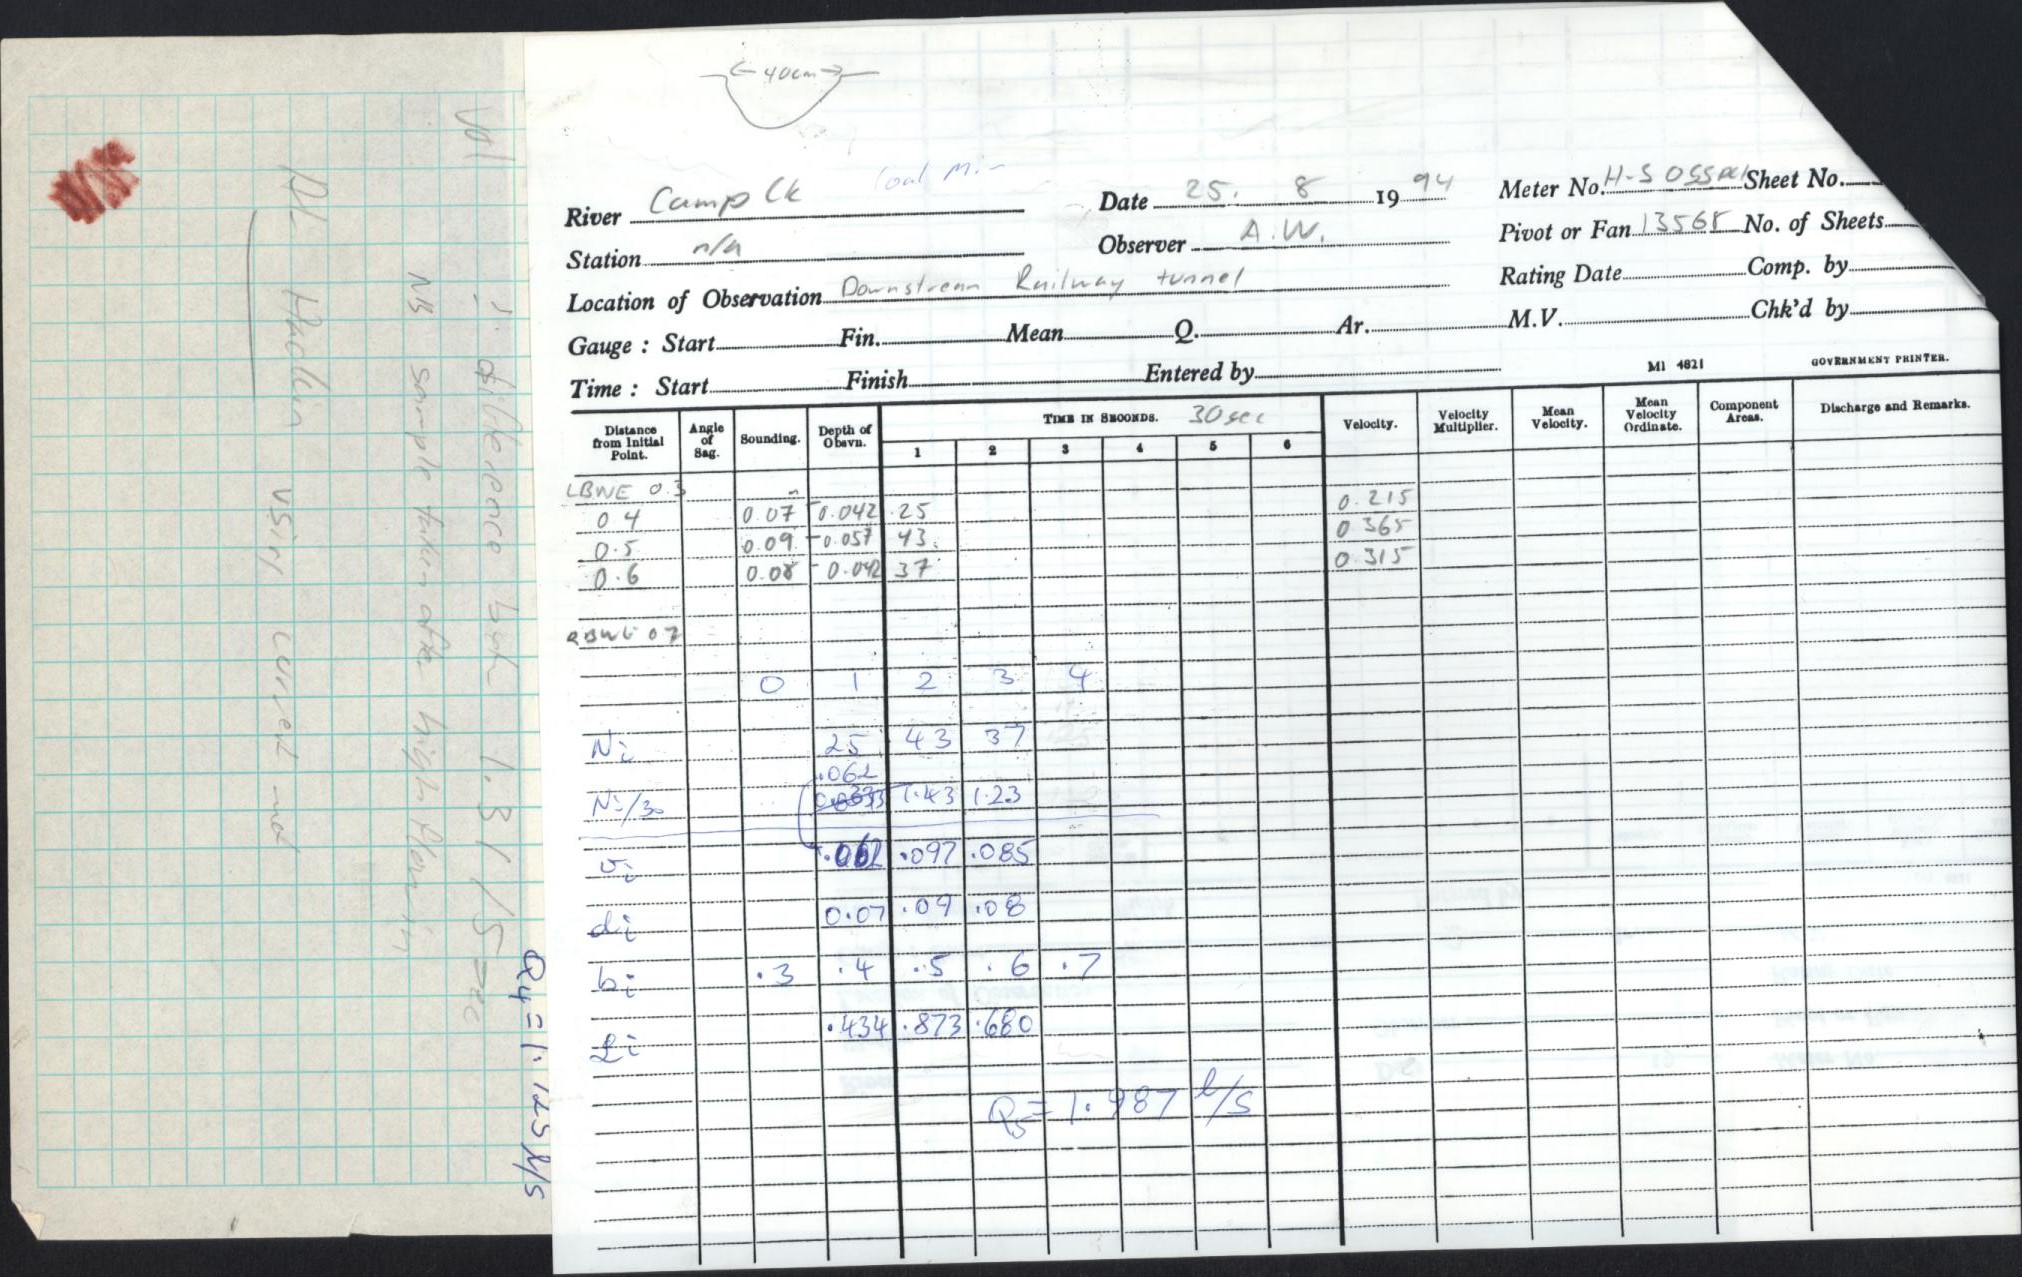 ← 40cm →
Coal Min
River Camp Ck
Date 25. 8 19 94
Meter No. H-S OSSPC1 Sheet No.
Station n/a
Observer A.W.
Pivot or Fan 13568 No. of Sheets
Location of Observation Downstream Railway tunnel
Rating Date Comp. by
Gauge : Start Fin. Mean Q. Ar. M.V. Chk'd by
Time : Start Finish Entered by
MI 4821 GOVERNMENT PRINTER.
Distance from Initial Point. Angle of Sag. Sounding. Depth of Obsvn. TIME IN SECONDS. 30 sec Velocity. Velocity Multiplier. Mean Velocity. Mean Velocity Ordinate. Component Areas. Discharge and Remarks.
1 2 3 4 5 6
LBWE 0.3
0.4 0.07 0.042 25 0.215
0.5 0.09 0.057 43 0.365
0.6 0.08 0.042 37 0.315
RBWE 0.7
0 1 2 3 4
Ni 25 43 37
.062
Ni/30 1.43 1.23
vi .062 .097 .085
di 0.07 .09 .08
bi .3 .4 .5 .6 .7
qi .434 .873 .680
Q5 = 1.987 l/s
Q4 = 1.125 l/s
Vol
difference 1.31 / 15 sec
NB sample taken after
using current